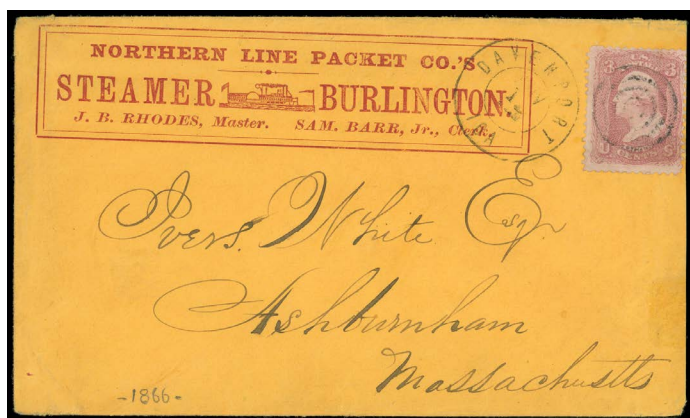 NORTHERN LINE PACKET CO.'S
STEAMER BURLINGTON.
J. B. RHODES, Master. SAM. BARR, Jr., Clerk.
DAVENPORT
3 3
CENTS
Ivers. White Esq.
Ashburnham
Massachusetts
-1866-